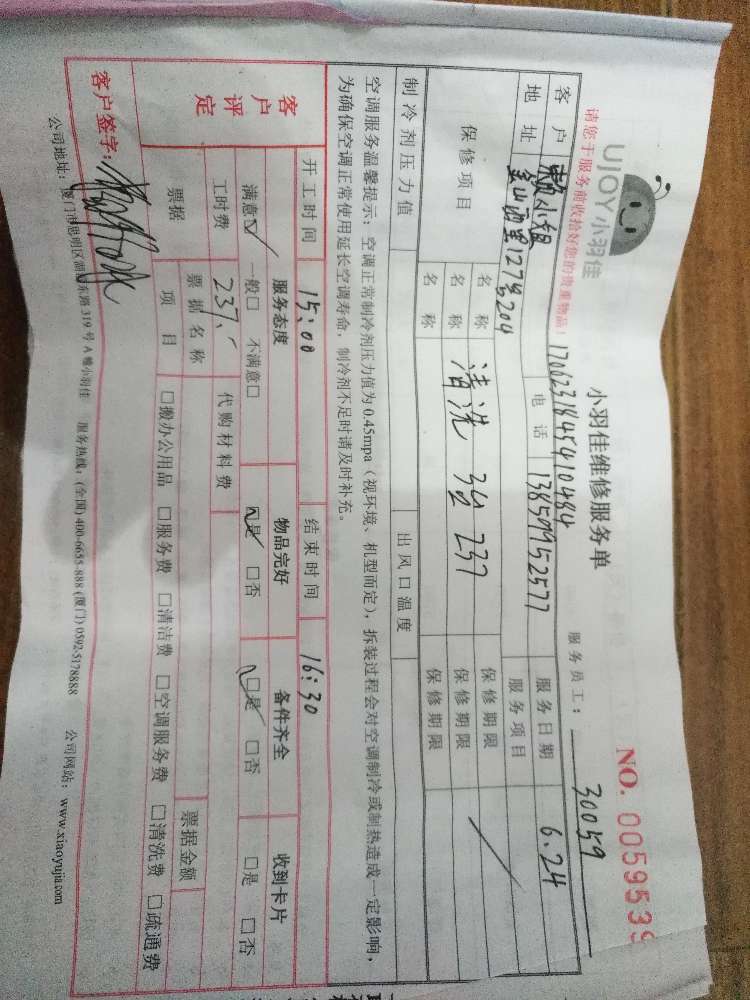 UJOY小羽佳
小羽佳维修服务单
NO. 0059539
请您于服务前收拾好您的贵重物品!
17062318454410484
服务员工: 30059
客户 赖小姐 电话 13859952577 服务日期 6.24
地址 127号204 服务项目
保修项目 名称 保修期限
名称 清洗 3台 237 保修期限
名称 保修期限
制冷剂压力值 出风口温度
空调服务温馨提示: 空调正常制冷剂压力值为0.45mpa (视环境、机型而定), 拆装过程会对空调制冷或制热造成一定影响,
为确保空调正常使用延长空调寿命, 制冷剂不足时请及时补充。
开工时间 15:00 结束时间 16:30
客户评定 服务态度 物品完好 备件齐全 收到卡片
满意☑ 一般□ 不满意□ ☑是 □否 ☑是 □否 □是 □否
工时费 237.- 代购材料费
票据 票据名称 票据金额
项目 □搬办公用品 □服务费 □清洁费 □空调服务费 □清洗费 □疏通费
客户签字:
公司地址: 厦门市思明区湖滨东路 319 号 A 幢小羽佳 服务热线: (全国) 400-6655-888 (厦门) 0592-5178888 公司网站: www.xiaoyujia.com